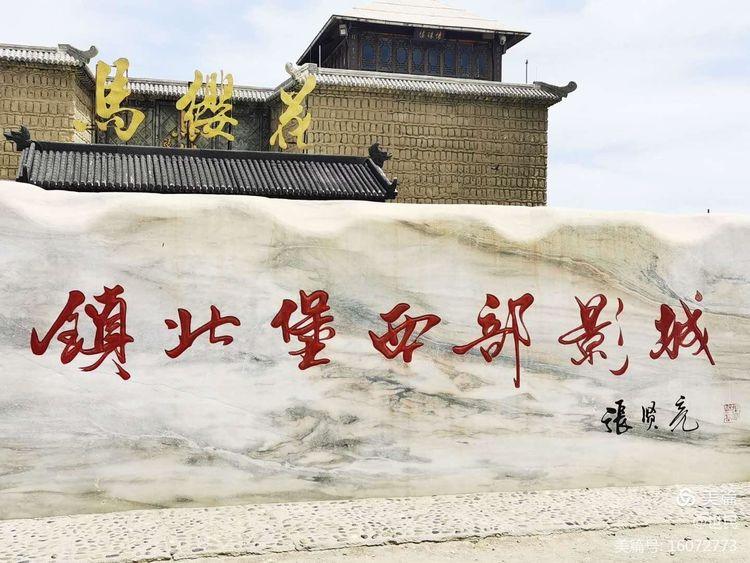 馬纓花
镇北堡西部影城
張贤亮
美篇
美篇号: 16072773